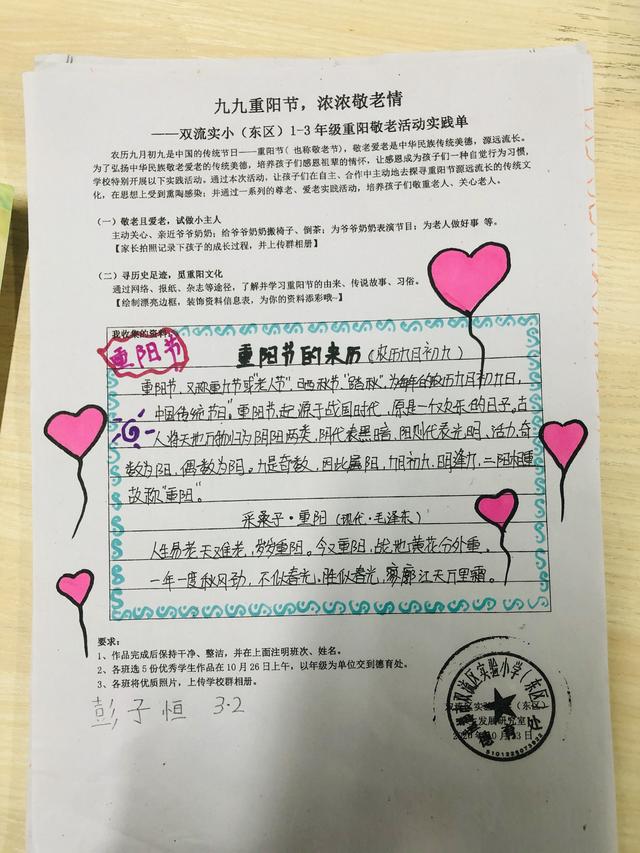 九九重阳节，浓浓敬老情
——双流实小（东区）1-3年级重阳敬老活动实践单
农历九月初九是中国的传统节日——重阳节（也称敬老节），敬老爱老是中华民族传统美德，源远流长。
为了弘扬中华民族敬老爱老的传统美德，培养孩子们感恩祖辈的情怀，让感恩成为孩子们一种自觉行为习惯，
学校特别开展以下实践活动。通过本次活动，让孩子们在自主、合作中主动地去探寻重阳节源远流长的传统文
化，在思想上受到熏陶感染；并通过一系列的尊老、爱老实践活动，培养孩子们敬重老人、关心老人。
（一）敬老且爱老，试做小主人
主动关心、亲近爷爷奶奶；给爷爷奶奶搬椅子、倒茶；为爷爷奶奶表演节目；为老人做好事 等。
【家长拍照记录下孩子的成长过程，并上传群相册】
（二）寻历史足迹，觅重阳文化
通过网络、报纸、杂志等途径，了解并学习重阳节的由来、传说故事、习俗。
【绘制漂亮边框，装饰资料信息表，为你的资料添彩哦~】
我收集的资料：
重阳节
重阳节的来历（农历九月初九）
重阳节，又称重九节或“老人节”、日晒秋节、“踏秋”，为每年的农历九月初九日，
中国传统节日。重阳节，起源于战国时代，原是一个欢乐的日子。古
人将天地万物归为阴阳两类，阴代表黑暗，阳则代表光明、活力，奇
数为阳，偶数为阴。九是奇数，因此属阳，九月初九，日月逢九，二阳相重，
故称“重阳”。
采桑子·重阳（现代·毛泽东）
人生易老天难老，岁岁重阳。今又重阳，战地黄花分外香。
一年一度秋风劲，不似春光。胜似春光，寥廓江天万里霜。
要求：
1、作品完成后保持干净、整洁，并在上面注明班次、姓名。
2、各班选5份优秀学生作品在10月26日上午，以年级为单位交到德育处。
3、各班将优质照片，上传学校群相册。
彭子恒 3.2
双流区实验小学（东区）
德育处
5101225073922
发展研究室